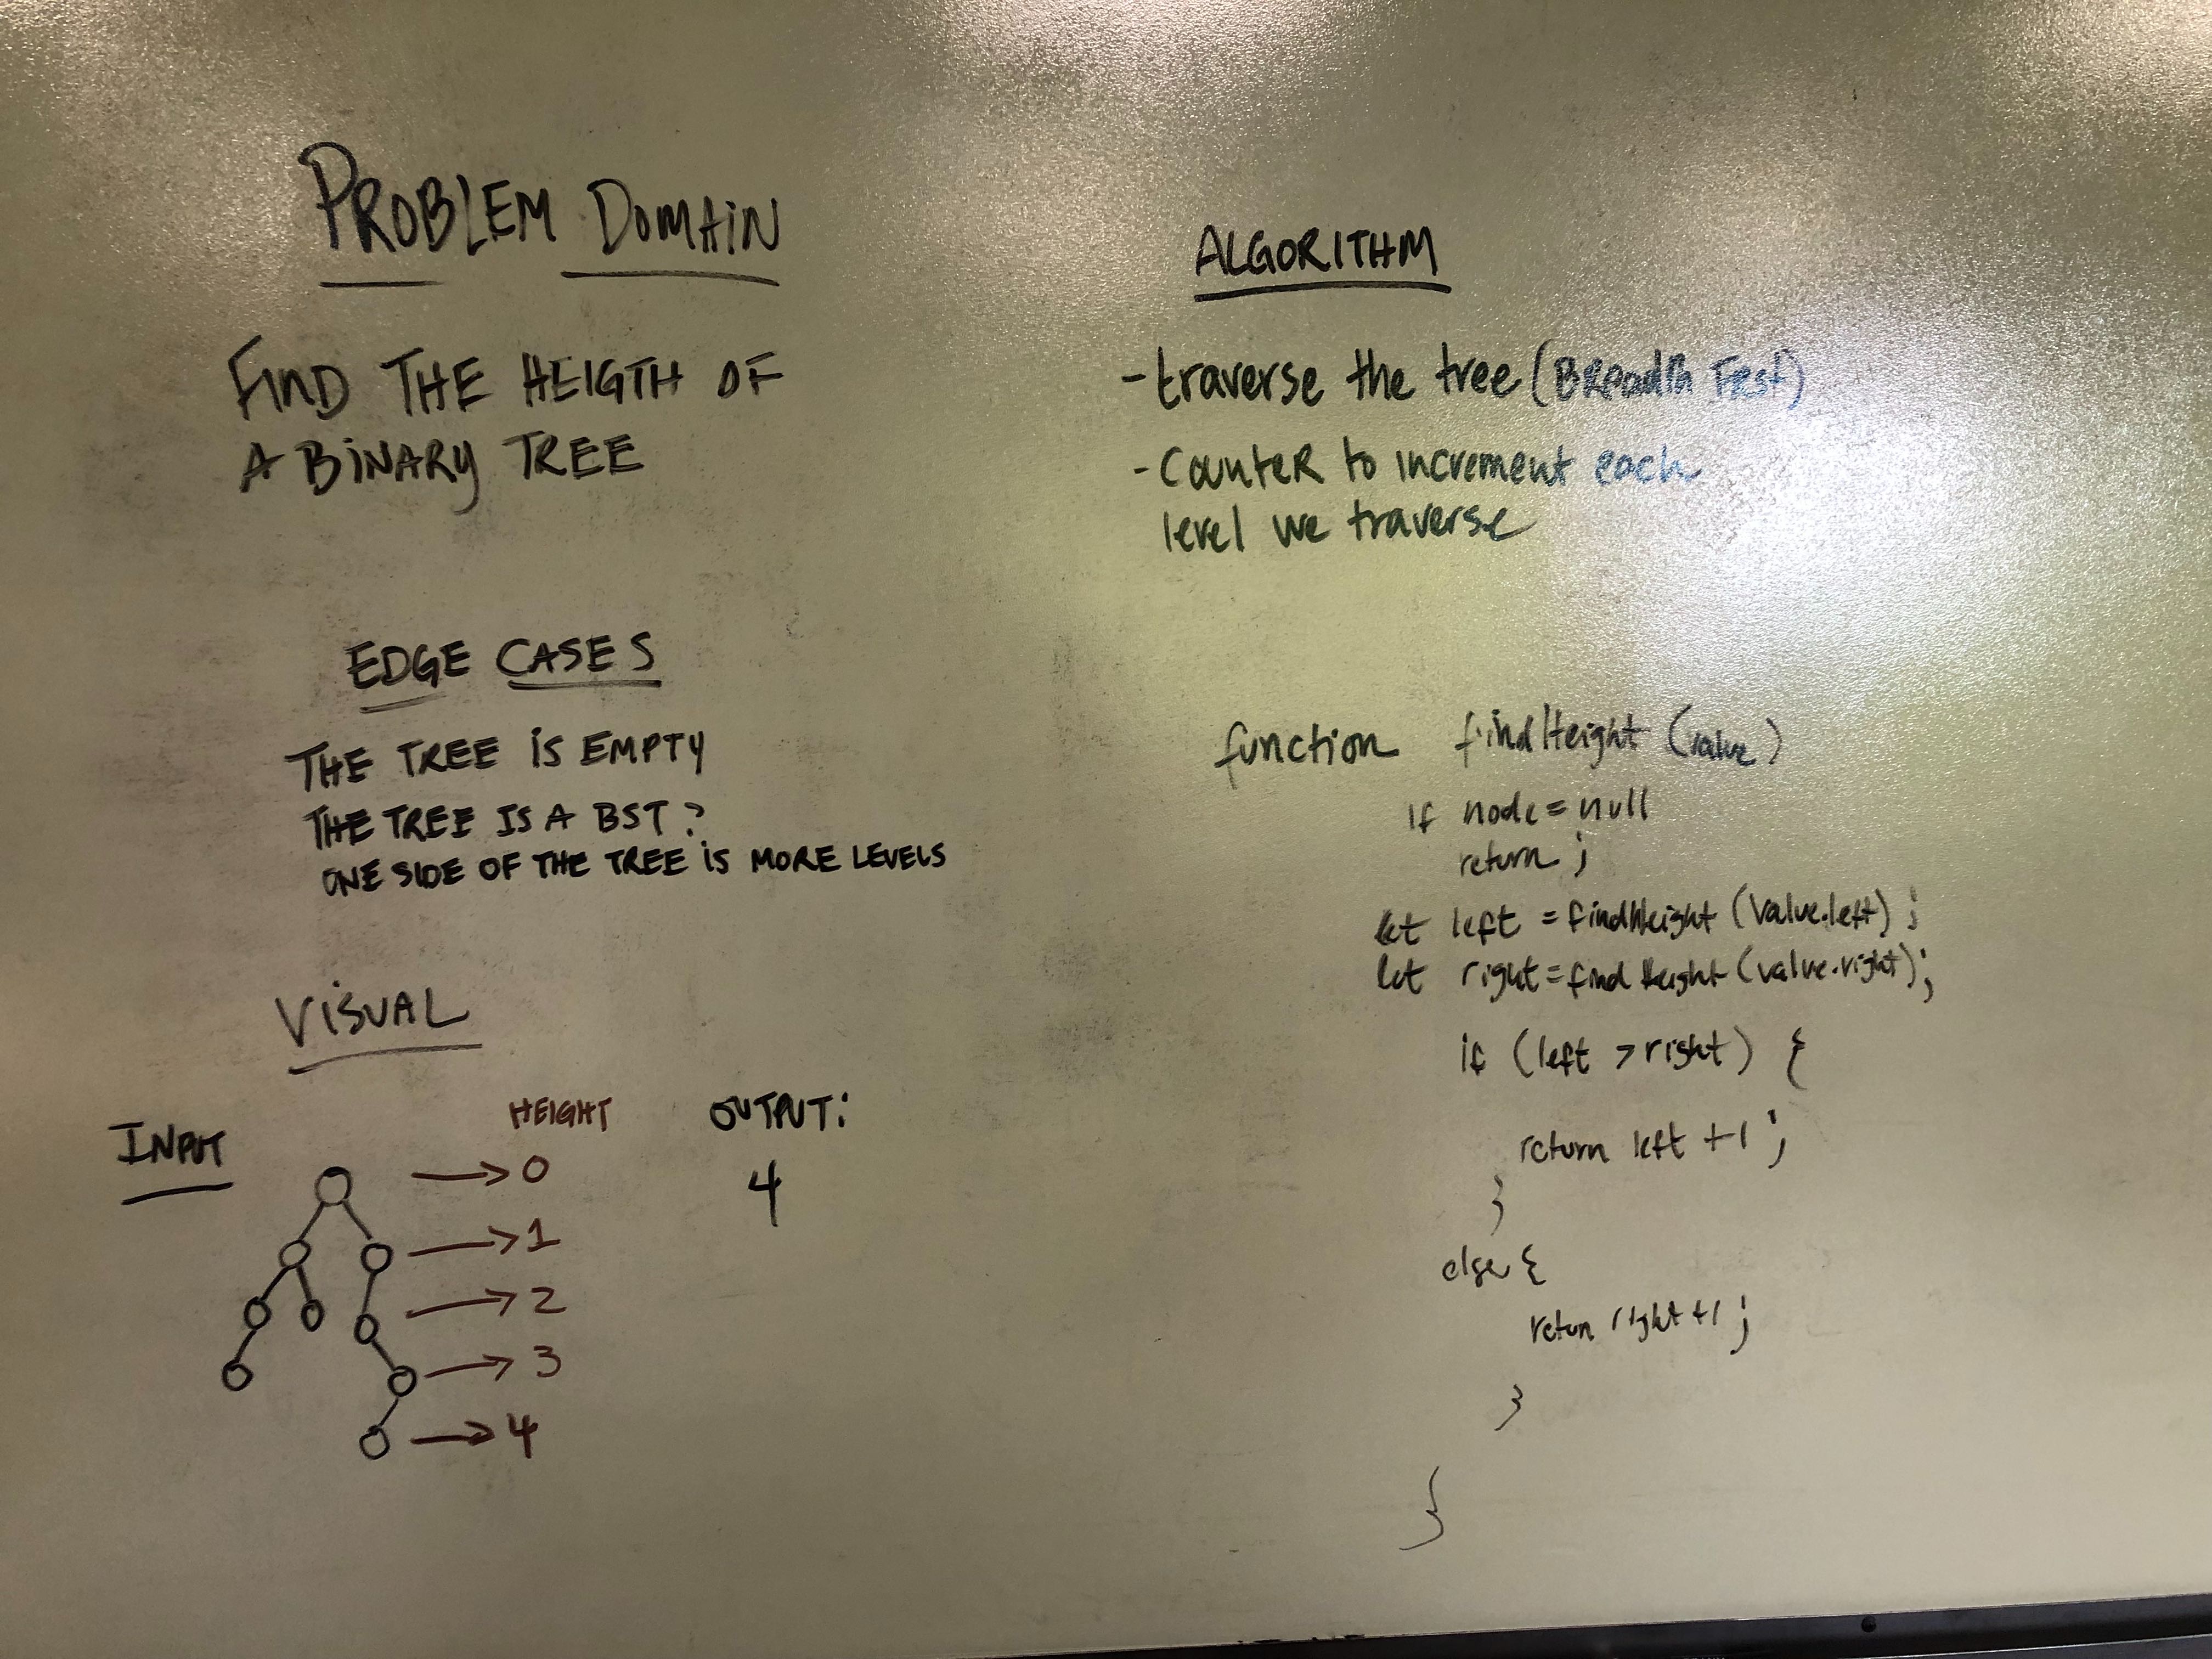 PROBLEM DOMAIN
FIND THE HEIGTH OF
A BINARY TREE
EDGE CASES
THE TREE IS EMPTY
THE TREE IS A BST?
ONE SIDE OF THE TREE IS MORE LEVELS
VISUAL
INPUT
HEIGHT
→ 0
→ 1
→ 2
→ 3
→ 4
OUTPUT:
4
ALGORITHM
- traverse the tree (Breadth First)
- Counter to increment each
level we traverse
function findHeight (value)
if node = null
return ;
let left = findHeight (value.left) ;
let right = findHeight (value.right);
if (left > right) {
return left +1 ;
}
else {
return right +1 ;
}
}